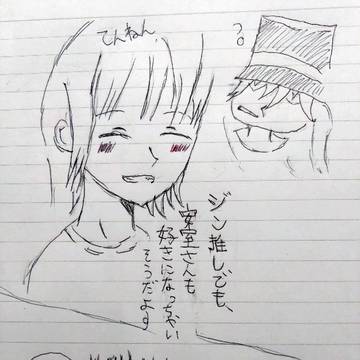 てんねん
プロ
ジン推しでも、
安室さんも
好きになっちゃい
そうだよす